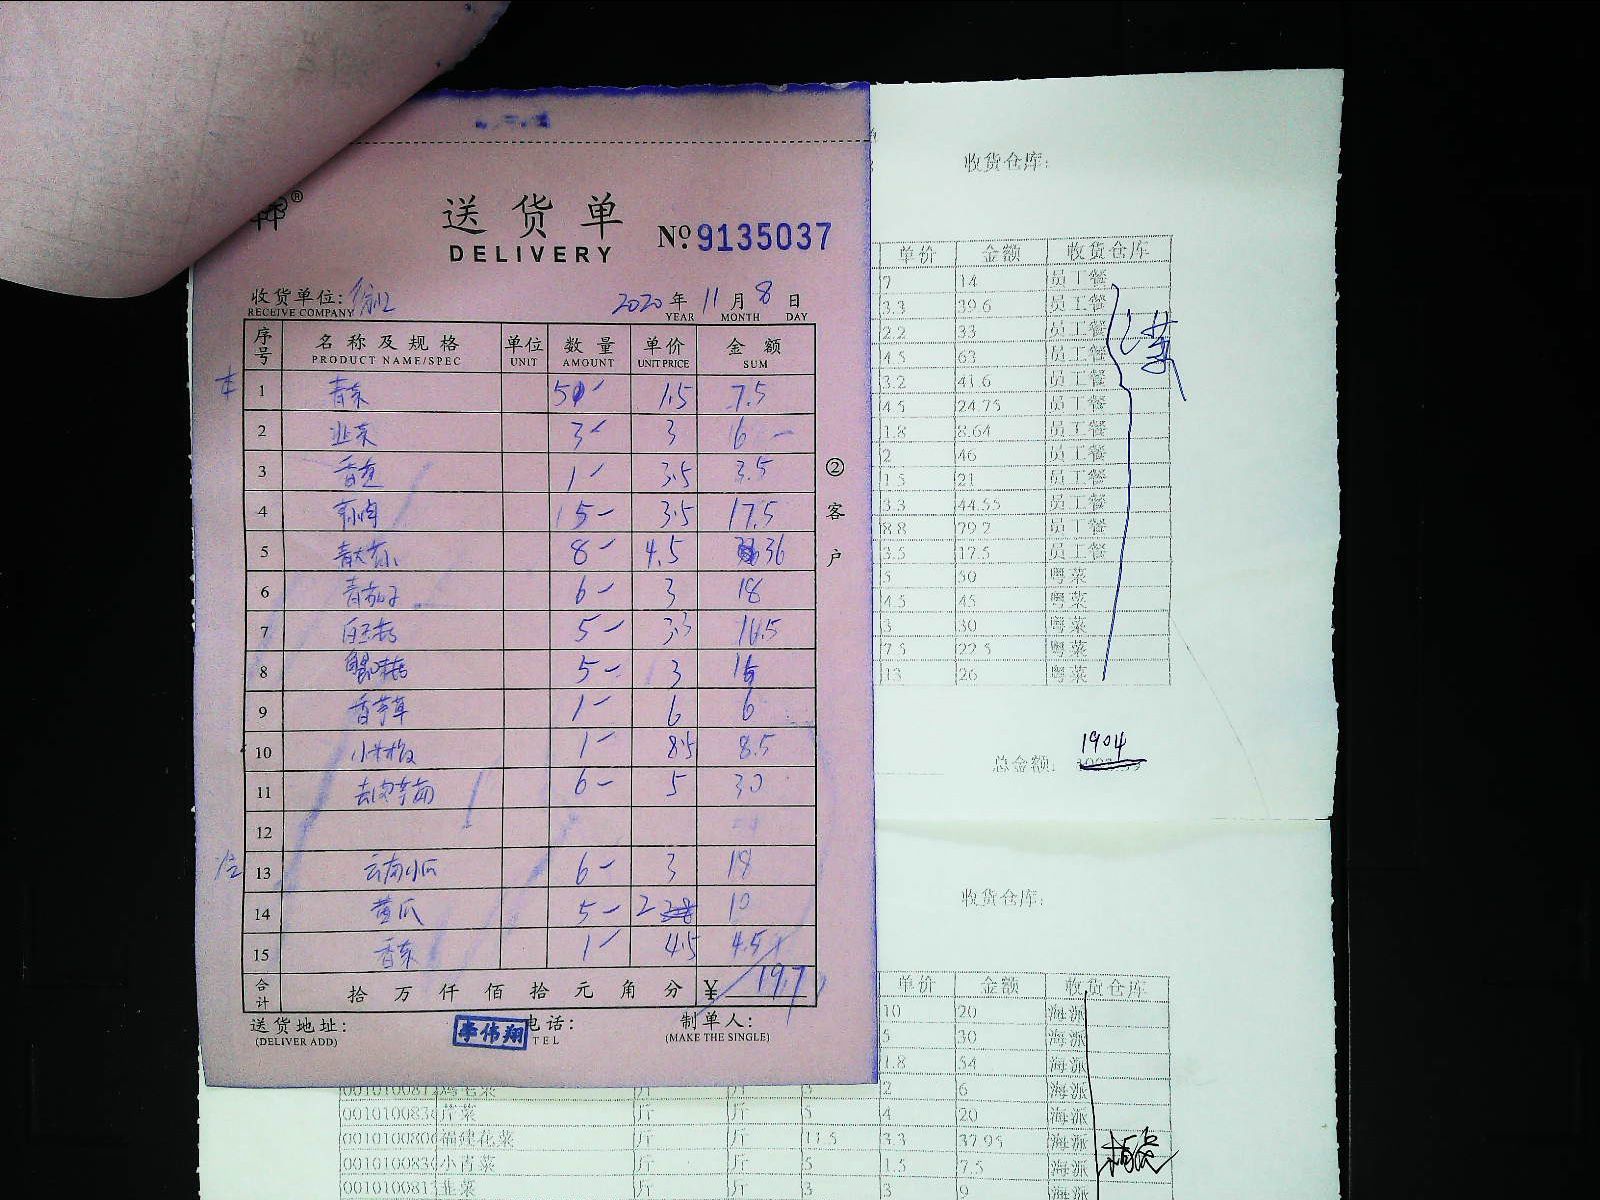 送货单
DELIVERY
№ 9135037
收货单位:
RECEIVE COMPANY
2020年 11月 8日
YEAR MONTH DAY
序号 名称及规格 单位 数量 单价 金额
PRODUCT NAME/SPEC UNIT AMOUNT UNIT PRICE SUM
1 青菜 5 1.5 7.5
2 韭菜 3 3
3 1 3.5 3.5
4 5 3.5 17.5
5 8 4.5 36
6 青茄子 6 3 18
7 白玉菇 5 3.3 16.5
8 蟹味菇 5 3 15
9 香芋草 1 6 6
10 小米椒 1 8.5 8.5
11 6 5 30
12
13 云南小瓜 6 3 18
14 黄瓜 5 2 10
15 香菜 1 4.5 4.5
合计 拾万仟佰拾元角分 ¥ 197
②客户
送货地址:
(DELIVER ADD)
李伟翔
电话:
TEL
制单人:
(MAKE THE SINGLE)
收货仓库:
单价 金额 收货仓库
7 14 员工餐
3.3 39.6 员工餐
2.2 33 员工餐
4.5 63 员工餐
3.2 41.6 员工餐
4.5 24.75 员工餐
1.8 8.64 员工餐
2 46 员工餐
1.5 21 员工餐
3.3 44.55 员工餐
8.8 79.2 员工餐
3.5 17.5 员工餐
5 50 粤菜
4.5 45 粤菜
3 30 粤菜
7.5 22.5 粤菜
13 26 粤菜
总金额: 1904
收货仓库:
单价 金额 收货仓库
10 20 海派
5 30 海派
1.8 54 海派
鸡毛菜 斤 斤 3 2 6 海派
芹菜 斤 斤 5 4 20 海派
福建花菜 斤 斤 11.5 3.3 37.95 海派
小青菜 斤 斤 5 1.5 7.5 海派
韭菜 斤 斤 3 3 9 海派